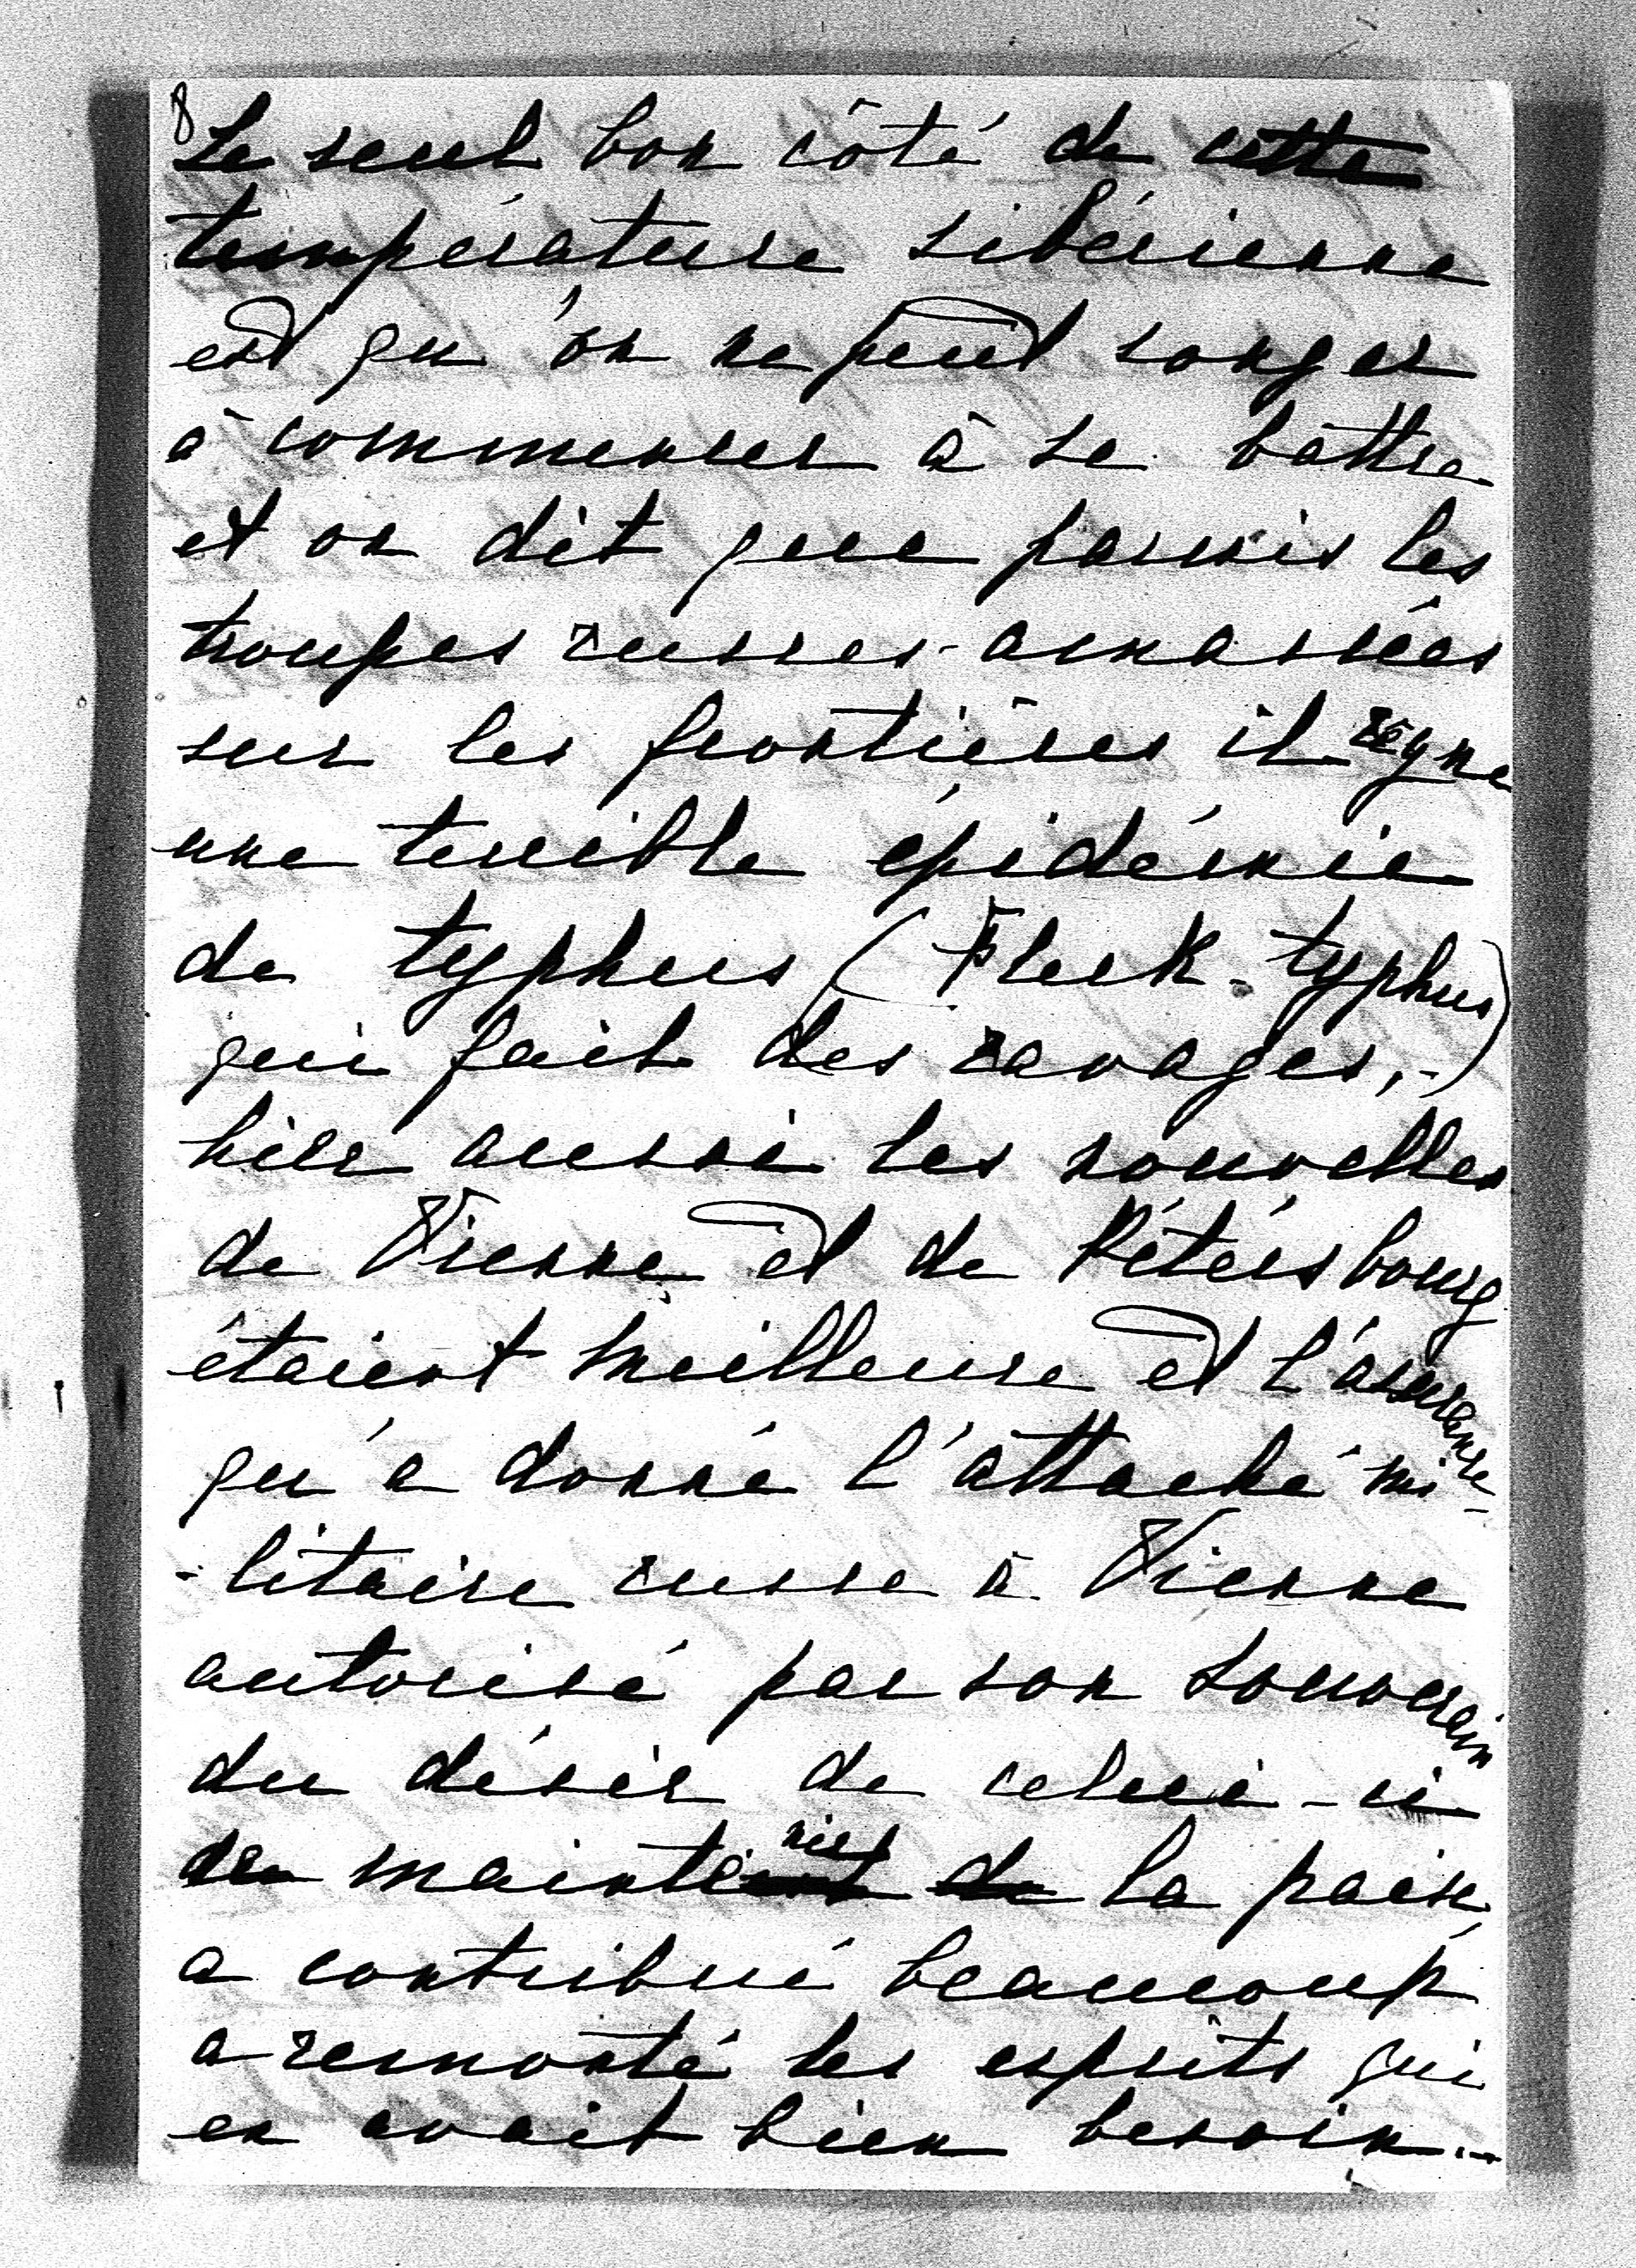 8
Le seul bon côté de cette
température sibérienne
est qu'on ne peut songer
à commencer à se battre
et on dit que parmis les
troupes russes amassées
sur les frontières il règne
une terrible épidémie
de typhus (Fleck-typhus)
qui fait des ravages,-
hier aussi les nouvelles
de Vienne et de Pétersbourg
étaient meilleure et l'assurance
qu'a donné l'attaché mi-
-litaire russe à Vienne
autorisé par son souverain
du désir de celui-ci
de maintenir la paix,
a contribué beaucoup
a remonté les esprits qui
en avait bien besoin.-